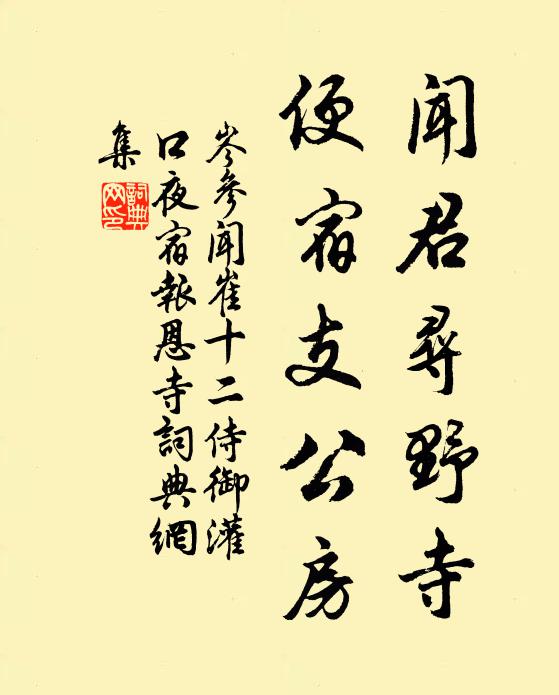 聞君尋野寺
便宿支公房
岑參聞崔十二侍御灌
口夜宿報恩寺詞典網
集
詞典網印